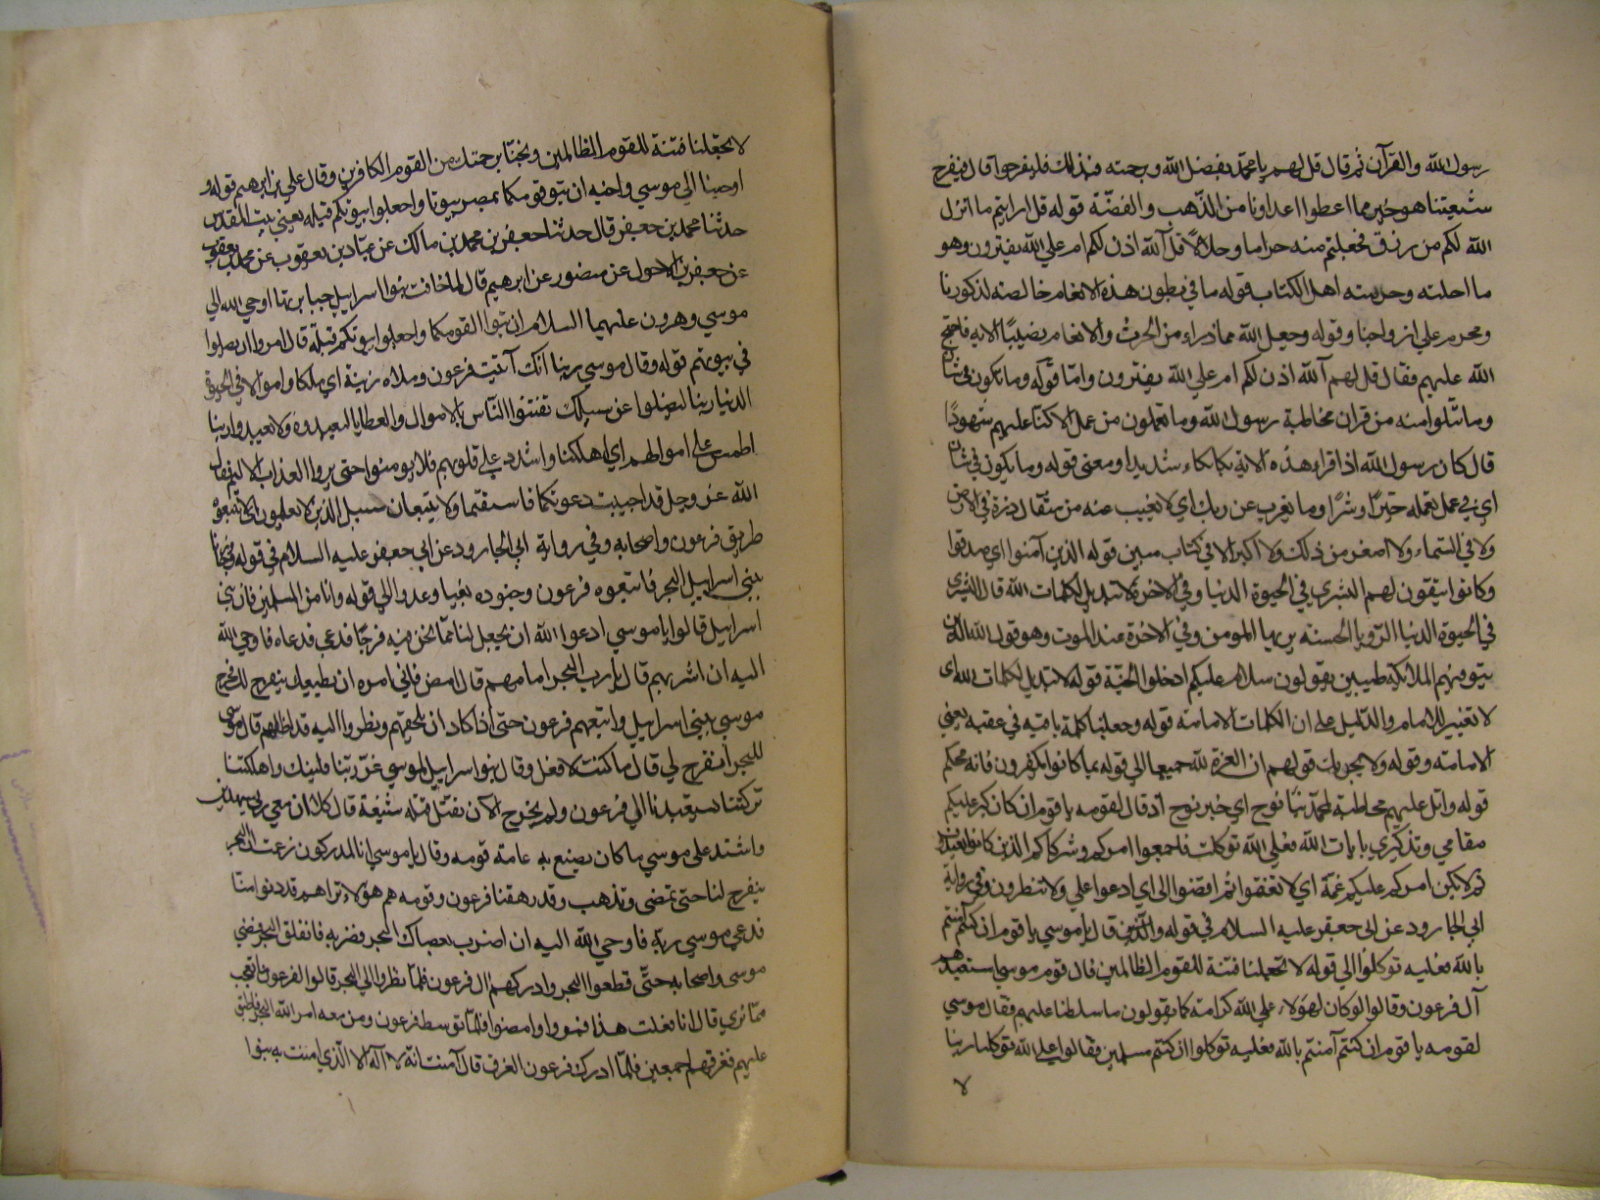 رسول الله والقرآن ثم قال قل لهم يا محمد بفضل الله وبرحمته فبذلك فليفرحوا قال فيفرح
شيعتنا هو خير مما اعطوا اعداونا من الذهب والفضة قوله قل ارايتم ما انزل
الله لكم من رزق فجعلتم منه حراما وحلالا قل آلله اذن لكم ام علي الله يفترون وهو
ما احلته وحرمته اهل الكتاب قوله ما في بطون هذه الانعام خالصة لذكورنا
ومحرم علي ازواجنا وقوله وجعل الله مما ذراء من الحرث والانعام نصيبًا الاية فاحتج
الله عليهم فقال قل لهم آلله اذن لكم ام علي الله يفترون وامّا قوله وما تكون في شان
وما تتلوا منه من قران مخاطبة رسول الله وما تعملون من عمل الا كنا عليهم شهودًا
قال كان رسول الله اذا قراء هذه الاية بكا بكاء شديدا ومعنى قوله وما يكون في شان
اي في عمل نعمله خيرًا وشرًا وما يغرب عن ربك اي لا يغيب عنه من مثقال ذرة في الارض
ولا في السماء ولا اصغر من ذلك ولا اكبر الا في كتاب مبين قوله الذين آمنوا اي صدقوا
وكانوا يتقون لهم البشري في الحيوة الدنيا وفي الاخرة لا تبديل لكلمات الله قال البشري
في الحيوة الدنيا الرؤيا الحسنه يريها المومن وفي الاخرة عند الموت وهو قول الله الذين
يتوفيهم الملائكة طيبين يقولون سلام عليكم ادخلوا الجنّة قوله لا تبديل لكلمات الله اى
لا تغيير للامام والدليل علي ان الكلمات الامامة قوله وجعلنا كلمة باقية في عقبه يعني
الامامة وقوله ولا يحزنك قولهم ان العزة لله جميعا الي قوله بما كانوا يكفرون فانه محكم
قوله واتل عليهم مخاطبة لمحمد نبا نوح اي خبر نوح اذ قال لقومه يا قوم ان كان كبر عليكم
مقامي وتذكيري بايات الله فعلي الله توكلت فاجمعوا امركم وشركآكم الذين كانوا
ثم لا يكن امركم عليكم غمّة اي لا تغتموا ثم اقضوا الي اي ادعوا علي ولا تنظرون وفي رواية
ابي الجارود عن ابي جعفر عليه السلام في قوله قال يا موسي يا قوم ان كنتم آمنتم
بالله فعليه توكلوا الي قوله لا تجعلنا فتنة للقوم الظالمين فان قوم موسي استعبدهم
آل فرعون وقالوا لو كان لهؤلاء علي الله كرامة كما يقولون ما سلطنا عليهم فقال موسي
لقومه يا قوم ان كنتم آمنتم بالله فعليه توكلوا ان كنتم مسلمين فقالوا علي الله توكلنا ربنا
لا
لا تجعلنا فتنة للقوم الظالمين ونجنا برحمتك من القوم الكافرين وقال علي بن ابرهيم قوله و
اوحينا الي موسي واخيه ان تبوّءا لقومكما بمصر بيوتا واجعلوا بيوتكم قبلة يعني بيت المقدس
حدثنا محمد بن جعفر قال حدثنا جعفر بن محمد بن مالك عن عبّاد بن يعقوب عن محمد بن يعقوب
عن جعفر بن الاحول عن منصور عن ابرهيم قال لما خافت بنوا اسرايل جبابرتها اوحي الله الي
موسي وهرون عليهما السلام ان تبوّا لقومكما واجعلوا بيوتكم قبلة قال امروا ان يصلوا
في بيوتهم قوله وقال موسي ربنا انك آتيت فرعون وملاه زينة اي ملكا واموالا في الحيوة
الدنيا ربنا ليضلوا عن سبيلك تفتنوا النّاس بالاموال والعطايا ليعبدوه ولا يعبدوا ربنا
اطمس علي اموالهم اي اهلكنا واشدد علي قلوبهم فلا يومنوا حتى يروا العذاب الاليم فقال
الله عز وجل قد اجيبت دعوتكما فاستقيما ولا يتبعان سبيل الذين لا يعلمون اي لا تتبعوا
طريق فرعون واصحابه وفي رواية ابي الجارود عن ابي جعفر عليه السلام في قوله
ببني اسراييل البحر فاتبعوه فرعون وجنوده بغيا وعدوا الي قوله وانا من المسلمين فان بني
اسرايل قالوا يا موسي ادعوا الله ان يجعل لنا ممّا نحن فيه فرجًا فدعي فدعاه فاوحي الله
اليه ان اسر بهم قال يا رب البحر امامهم قال امض فاني امره ان يطيعك ينفرج لك فخرج
موسي ببني اسراييل واتبعهم فرعون حتى اذا كاد ان يلحقهم ونظروا اليه قد اظلهم قال موسى
للبحر انفرج لي قال ما كنت لافعل وقال بنو اسراييل لموسي غررتنا واهلكتنا
تركتنا تستعبدنا الي فرعون ولم نخرج الآن نقتل قتلة شنيعة قال كلا ان معي ربي سيهدين
واشتد علي موسي ما كان يصنع به عامة قومه وقال يا موسي انا لمدركون زعمت ان البحر
ينفرج لنا حتى نمضي ونذهب وقد رهقنا فرعون وقومه هم هؤلاء تراهم قد دنوا منا
فدعي موسي ربه فاوحي الله اليه ان اضرب بعصاك البحر فضربه فانفلق البحر فمضي
موسى واصحابه حتى قطعوا البحر وادركهم ال فرعون فلما نظروا الي البحر قالوا لفرعون ما تعجب
مما تري قال انا فعلت هذا فمروا وامضوا فلما توسط فرعون ومن معه امر الله البحر فاطبق
عليهم فغرقهم اجمعين فلما ادرك فرعون الغرق قال آمنت انه لا اله الا الذي امنت به بنوا